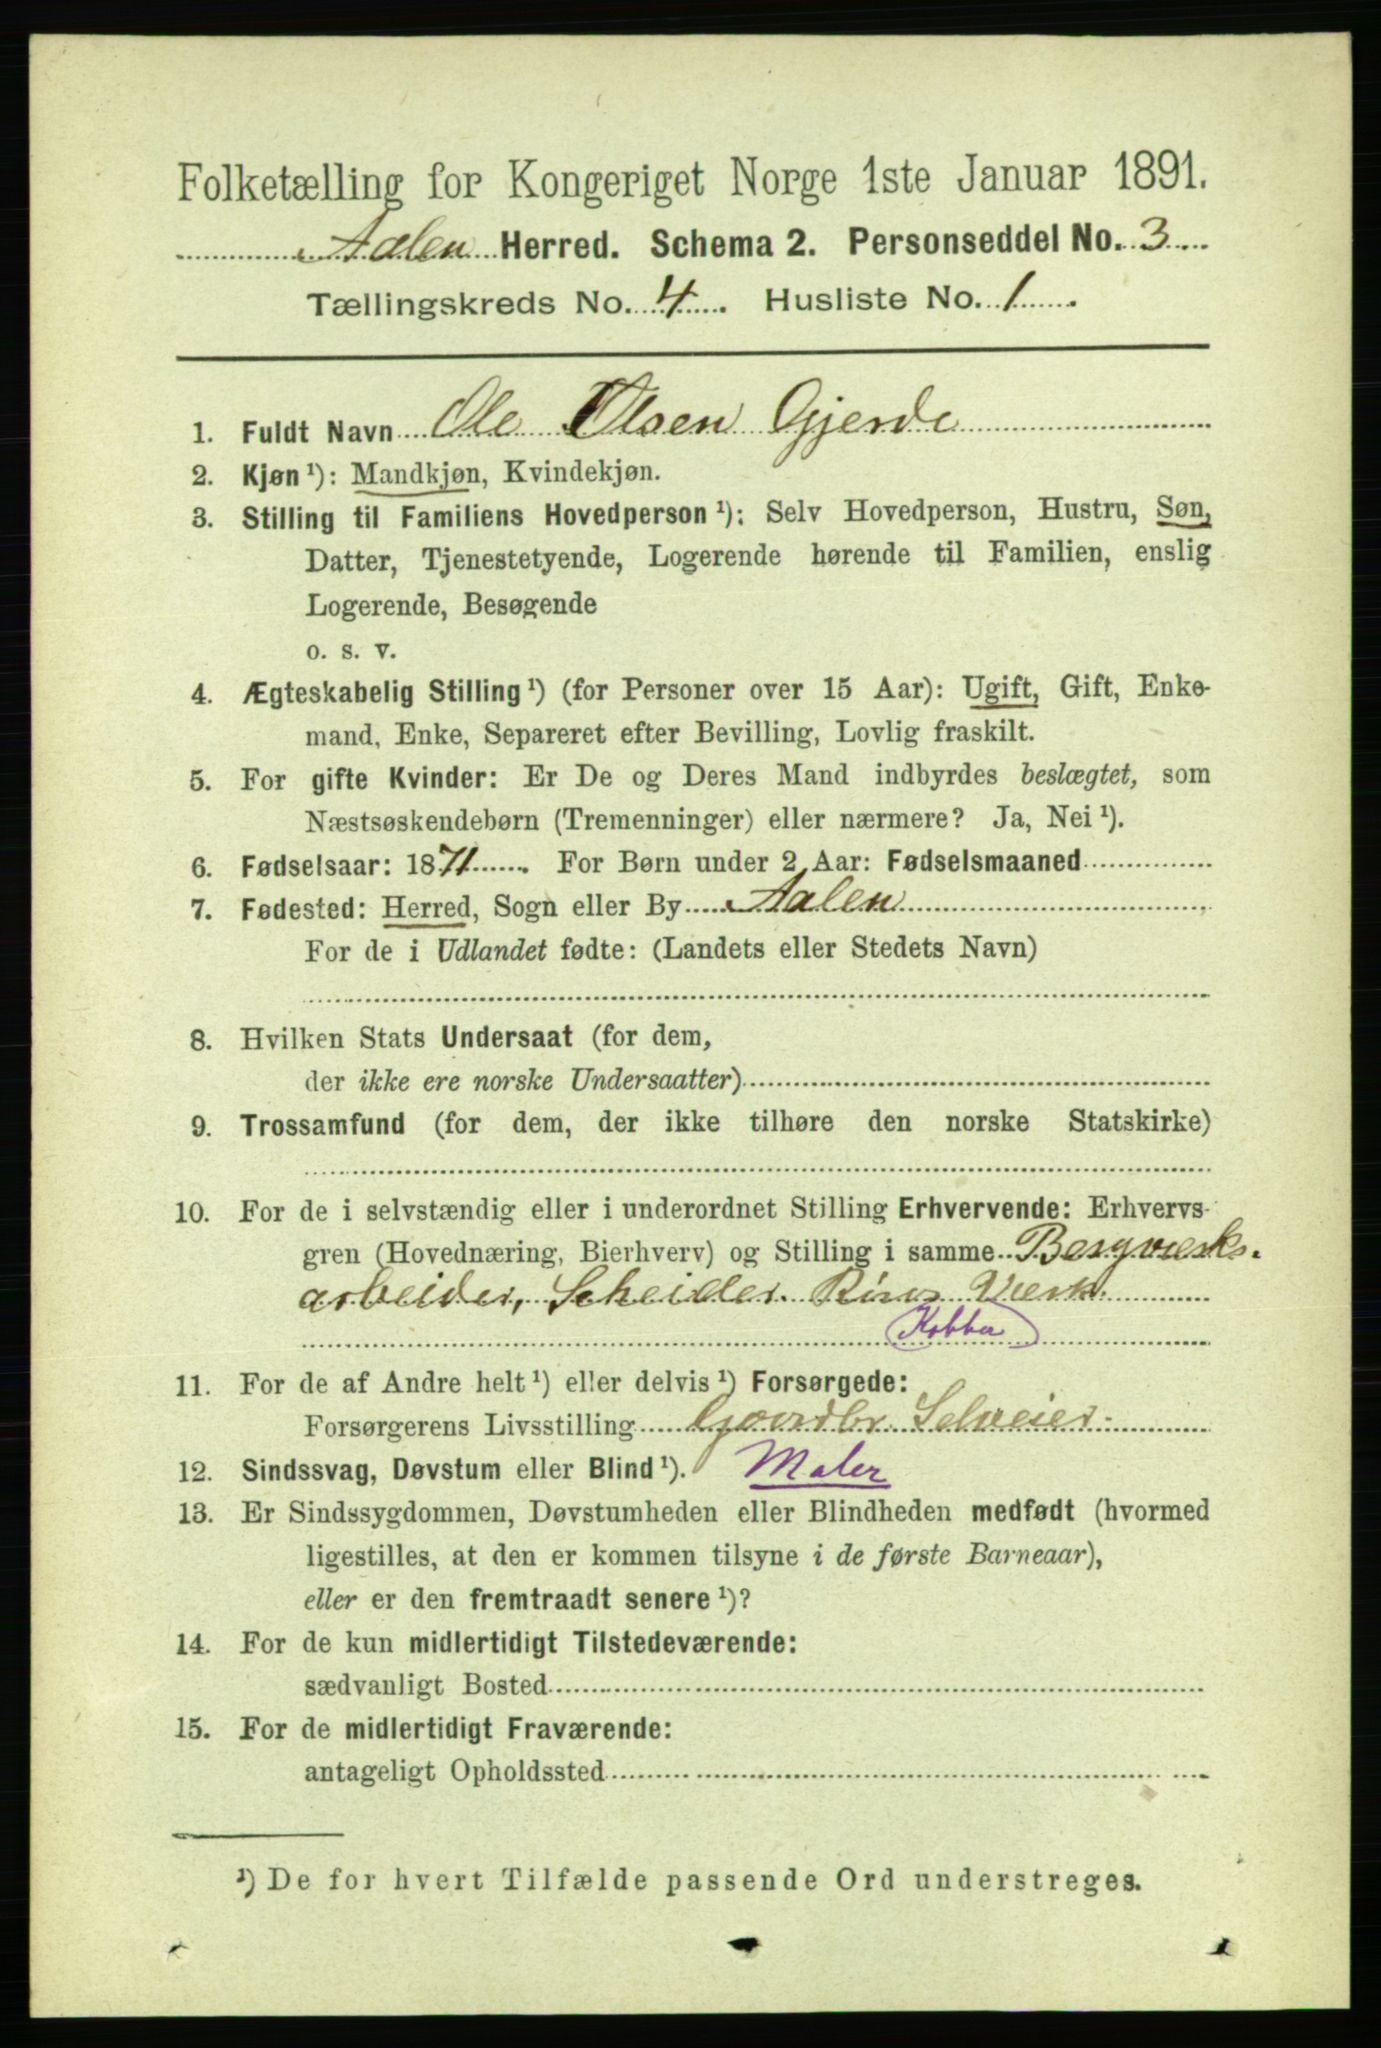 Folketælling for Kongeriget Norge 1ste Januar 1891.
Aalen Herred. Schema 2. Personseddel No. 3
Tællingskreds No. 4. Husliste No. 1.
1. Fuldt Navn Ole Olsen Gjerde
2. Kjøn ¹): Mandkjøn, Kvindekjøn.
3. Stilling til Familiens Hovedperson ¹): Selv Hovedperson, Hustru, Søn,
Datter, Tjenestetyende, Logerende hørende til Familien, enslig
Logerende, Besøgende
o. s. v.
4. Ægteskabelig Stilling ¹) (for Personer over 15 Aar): Ugift, Gift, Enke-
mand, Enke, Separeret efter Bevilling, Lovlig fraskilt.
5. For gifte Kvinder: Er De og Deres Mand indbyrdes beslægtet, som
Næstsøskendebørn (Tremenninger) eller nærmere? Ja, Nei ¹).
6. Fødselsaar: 1871. For Børn under 2 Aar: Fødselsmaaned
7. Fødested: Herred, Sogn eller By Aalen
For de i Udlandet fødte: (Landets eller Stedets Navn)
8. Hvilken Stats Undersaat (for dem,
der ikke ere norske Undersaatter)
9. Trossamfund (for dem, der ikke tilhøre den norske Statskirke)
10. For de i selvstændig eller i underordnet Stilling Erhvervende: Erhvervs-
gren (Hovednæring, Bierhverv) og Stilling i samme Bergværks.
arbeider, Scheider. Røros Værk.
Kobber
11. For de af Andre helt ¹) eller delvis ¹) Forsørgede:
Forsørgerens Livsstilling Gaardbr. Selveier.
12. Sindssvag, Døvstum eller Blind ¹). Maler
13. Er Sindssygdommen, Døvstumheden eller Blindheden medfødt (hvormed
ligestilles, at den er kommen tilsyne i de første Barneaar),
eller er den fremtraadt senere ¹)?
14. For de kun midlertidigt Tilstedeværende:
sædvanligt Bosted
15. For de midlertidigt Fraværende:
antageligt Opholdssted
¹) De for hvert Tilfælde passende Ord understreges.